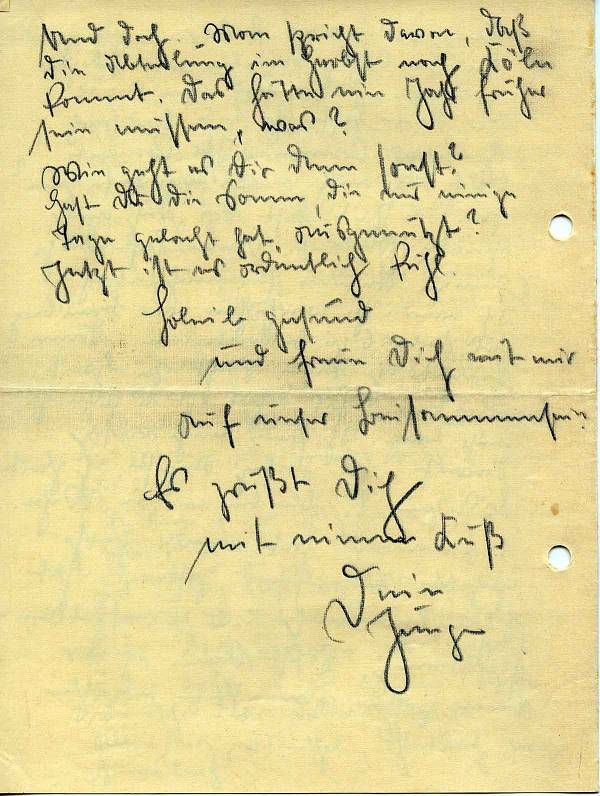 Und doch. Man spricht davon, daß
die Abteilung im Herbst nach Köln
kommt. Das hätte ein Jahr früher
sein müssen, was?
Wie geht es Dir denn sonst?
Hast Du die Sonne, die nur einige
Tage gelacht hat, ausgenützt?
Jetzt ist es ordentlich kühl.
Bleib gesund
und freue Dich mit mir
auf unser Beisammensein.
Es grüßt Dich
mit einem Kuß
Dein
Junge